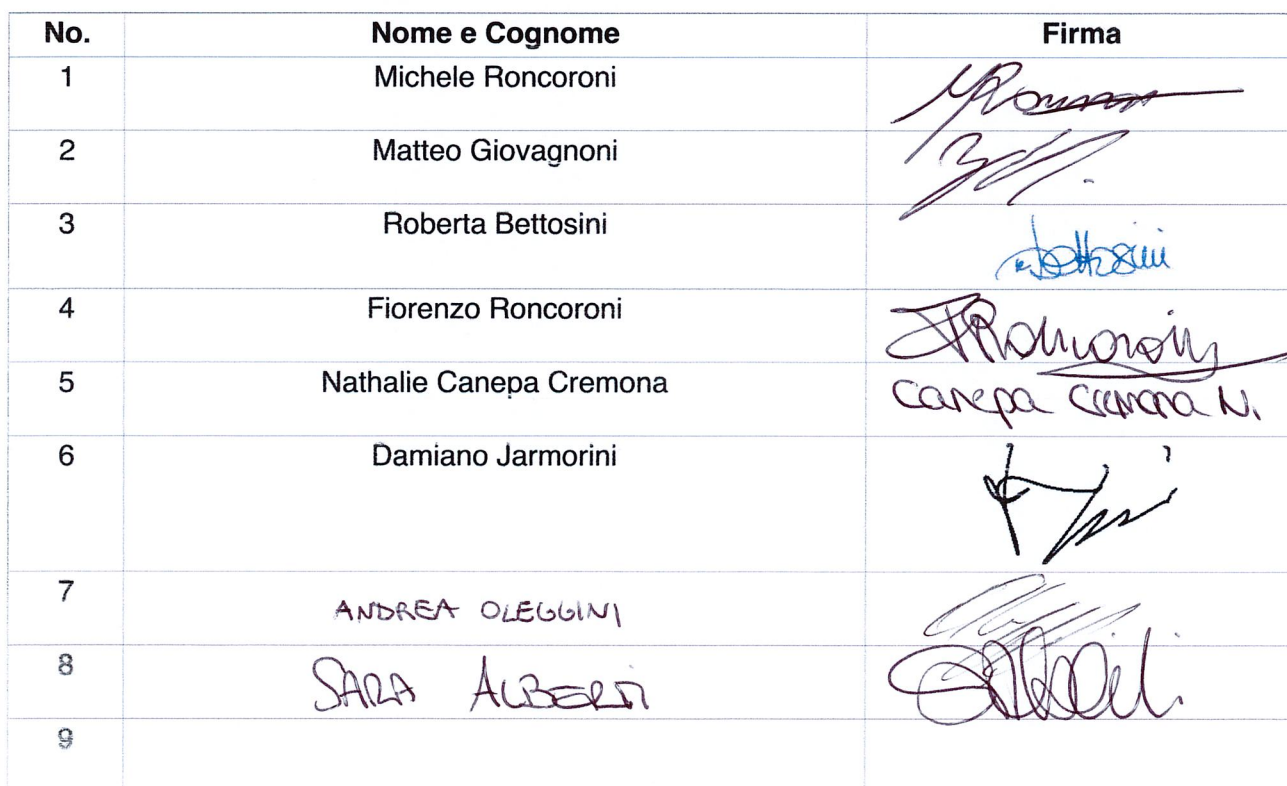 No. Nome e Cognome Firma
1 Michele Roncoroni
2 Matteo Giovagnoni
3 Roberta Bettosini R. Bettosini
4 Fiorenzo Roncoroni FRoncoroni
5 Nathalie Canepa Cremona Canepa Cremona N.
6 Damiano Jarmorini
7 ANDREA OLEGGINI
8 SARA ALBERTI
9